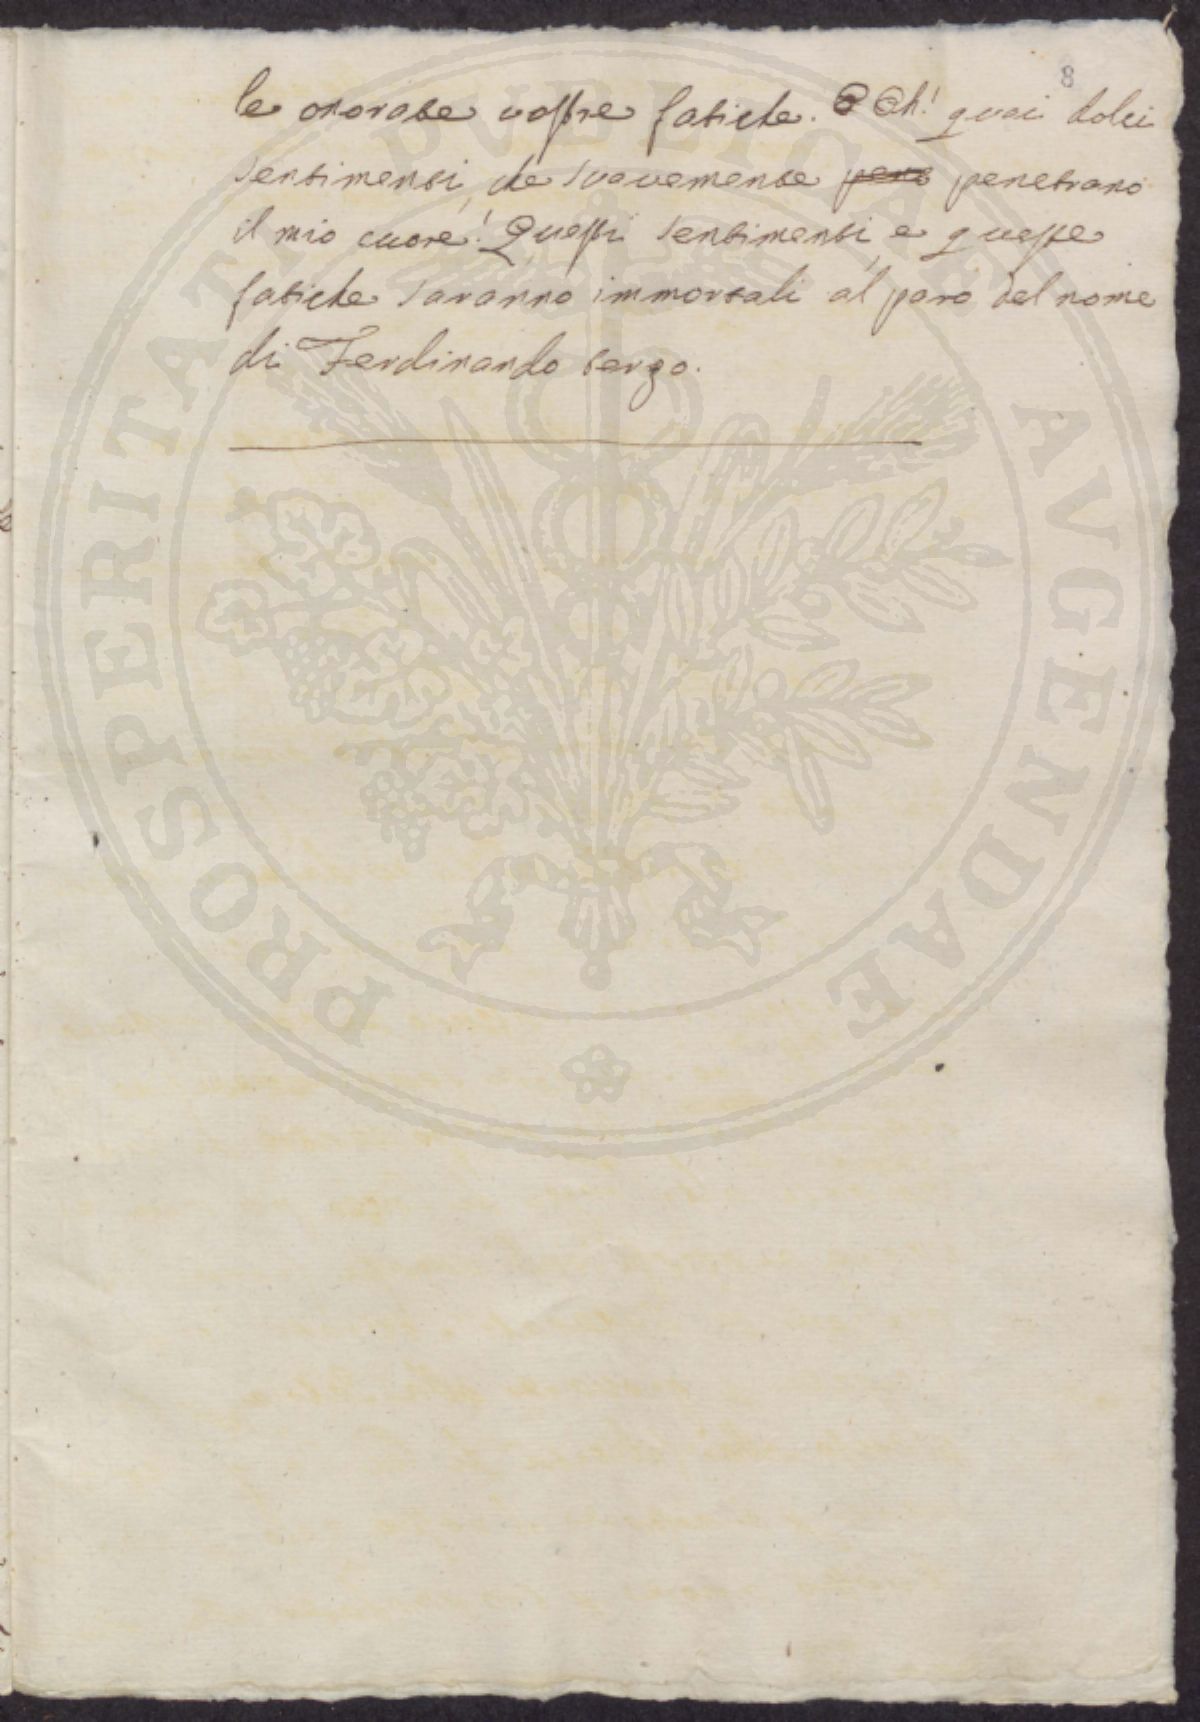 8
le onorate vostre fatiche. O Oh! quai dolci
sentimenti, che soavemente pene penetrano
il mio cuore! Questi sentimenti, e queste
fatiche saranno immortali al paro del nome
di Ferdinando terzo.
PROSPERITATI PVBLICAE AVGENDAE